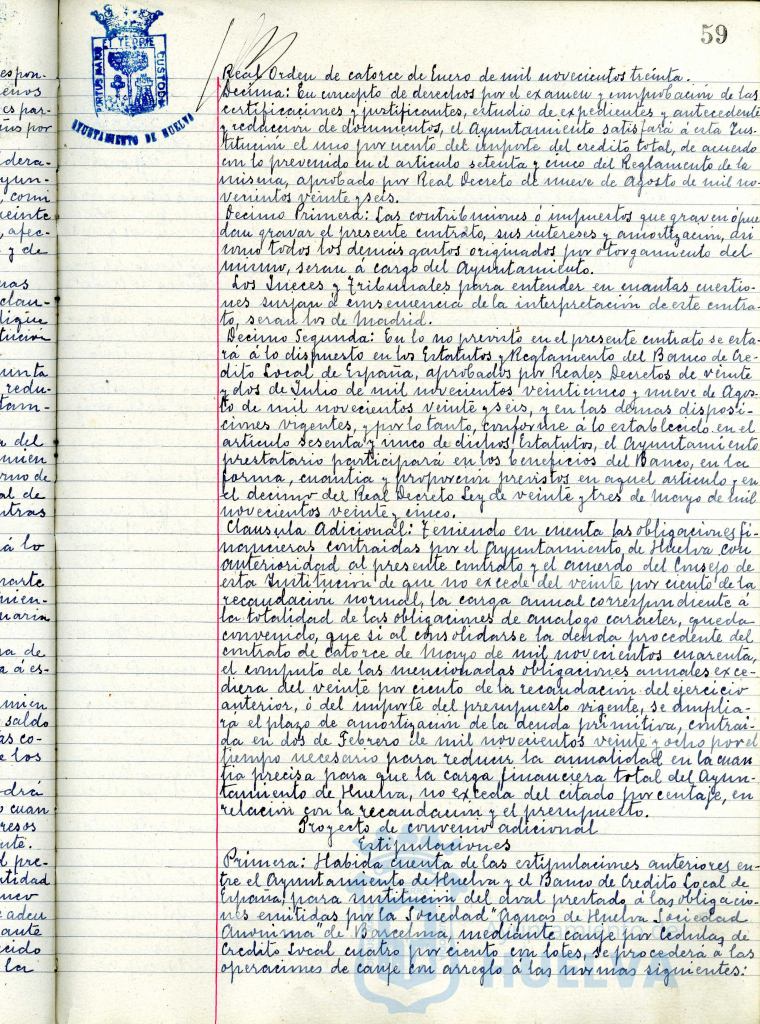 59
PORTUS MARIS ET TERRE CUSTODIA
AYUNTAMIENTO DE HUELVA
Real Orden de catorce de Enero de mil novecientos treinta.
Decima: En concepto de derechos por el examen y comprobación de las
certificaciones y justificantes, estudio de expedientes y antecedente
y redaccion de documentos, el Ayuntamiento satisfará á esta Ins-
titucion el uno por ciento del importe del credito total, de acuerdo
con lo prevenido en el articulo setenta y cinco del Reglamento de la
misma, aprobado por Real Decreto de nueve de Agosto de mil no-
vecientos veinte y seis.
Decimo Primera: Las contribuciones ó impuestos que graven ó pue
dan gravar el presente contrato, sus intereses y amortizacion, asi
como todos los demás gastos originados por otorgamiento del
mismo, seran á cargo del Ayuntamiento.
Los Jueces y Tribunales para entender en cuantas cuestio-
nes surjan á consecuencia de la interpretación de este contra-
to, seran los de Madrid.
Decimo Segunda: En lo no previsto en el presente contrato se esta-
rá á lo dispuesto en los Estatutos y Reglamento del Banco de Cre-
dito Local de España, aprobados por Reales Decretos de veinte
y dos de Julio de mil novecientos veinticinco y nueve de Agos-
to de mil novecientos veinte y seis, y en las demas disposi-
ciones vigentes, y por lo tanto, conforme á lo establecido en el
articulo sesenta y unco de dichos Estatutos, el Ayuntamiento
prestatario participará en los beneficios del Banco, en la
forma, cuantia y proporcion previstos en aquel articulo y en
el decimo del Real Decreto Ley de veinte y tres de Mayo de mil
novecientos veinte y cinco.
Clausula Adicional: Teniendo en cuenta las obligaciones fi-
nancieras contraidas por el Ayuntamiento de Huelva con
anterioridad al presente contrato y el acuerdo del Consejo de
esta Institucion de que no excede del veinte por ciento de la
recaudación normal, la carga anual correspondiente á
la totalidad de las obligaciones de analogo caracter, queda
convenido, que si al consolidarse la deuda procedente del
contrato de catorce de Mayo de mil novecientos cuarenta,
el computo de las mencionadas obligaciones anuales exce-
diera del veinte por ciento de la recaudación del ejercicio
anterior, ó del importe del presupuesto vigente, se amplia-
rá el plazo de amortización de la deuda primitiva, contrai-
da en dos de Febrero de mil novecientos veinte y ocho por el
tiempo necesario para reducir la anualidad en la cuan
tia precisa para que la carga financiera total del Ayun-
tamiento de Huelva, no exceda del citado porcentaje, en
relación con la recaudacion y el presupuesto.
Proyecto de convenio adicional
Estipulaciones
Primera: Habida cuenta de las estipulaciones anteriores en-
tre el Ayuntamiento de Huelva y el Banco de Crédito Local de
España, para sustitución del aval prestado á las obligacio-
nes emitidas por la Sociedad "Aguas de Huelva Sociedad
Anonima" de Barcelona, mediante canje por Cédulas de
Credito Local cuatro por ciento con lotes, se procederá a las
operaciones de canje con arreglo á las normas siguientes:
Ayuntamiento de
HUELVA